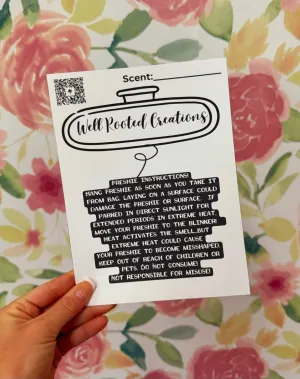 Scent:
Well Rooted Creations
FRESHIE INSTRUCTIONS!
HANG FRESHIE AS SOON AS YOU TAKE IT
FROM BAG. LAYING ON A SURFACE COULD
DAMAGE THE FRESHIE OR SURFACE. IF
PARKED IN DIRECT SUNLIGHT FOR
EXTENDED PERIODS IN EXTREME HEAT,
MOVE YOUR FRESHIE TO THE BLINKER!
HEAT ACTIVATES THE SMELL, BUT
EXTREME HEAT COULD CAUSE
YOUR FRESHIE TO BECOME MISSHAPED.
KEEP OUT OF REACH OF CHILDREN OR
PETS. DO NOT CONSUME!
NOT RESPONSIBLE FOR MISUSE!